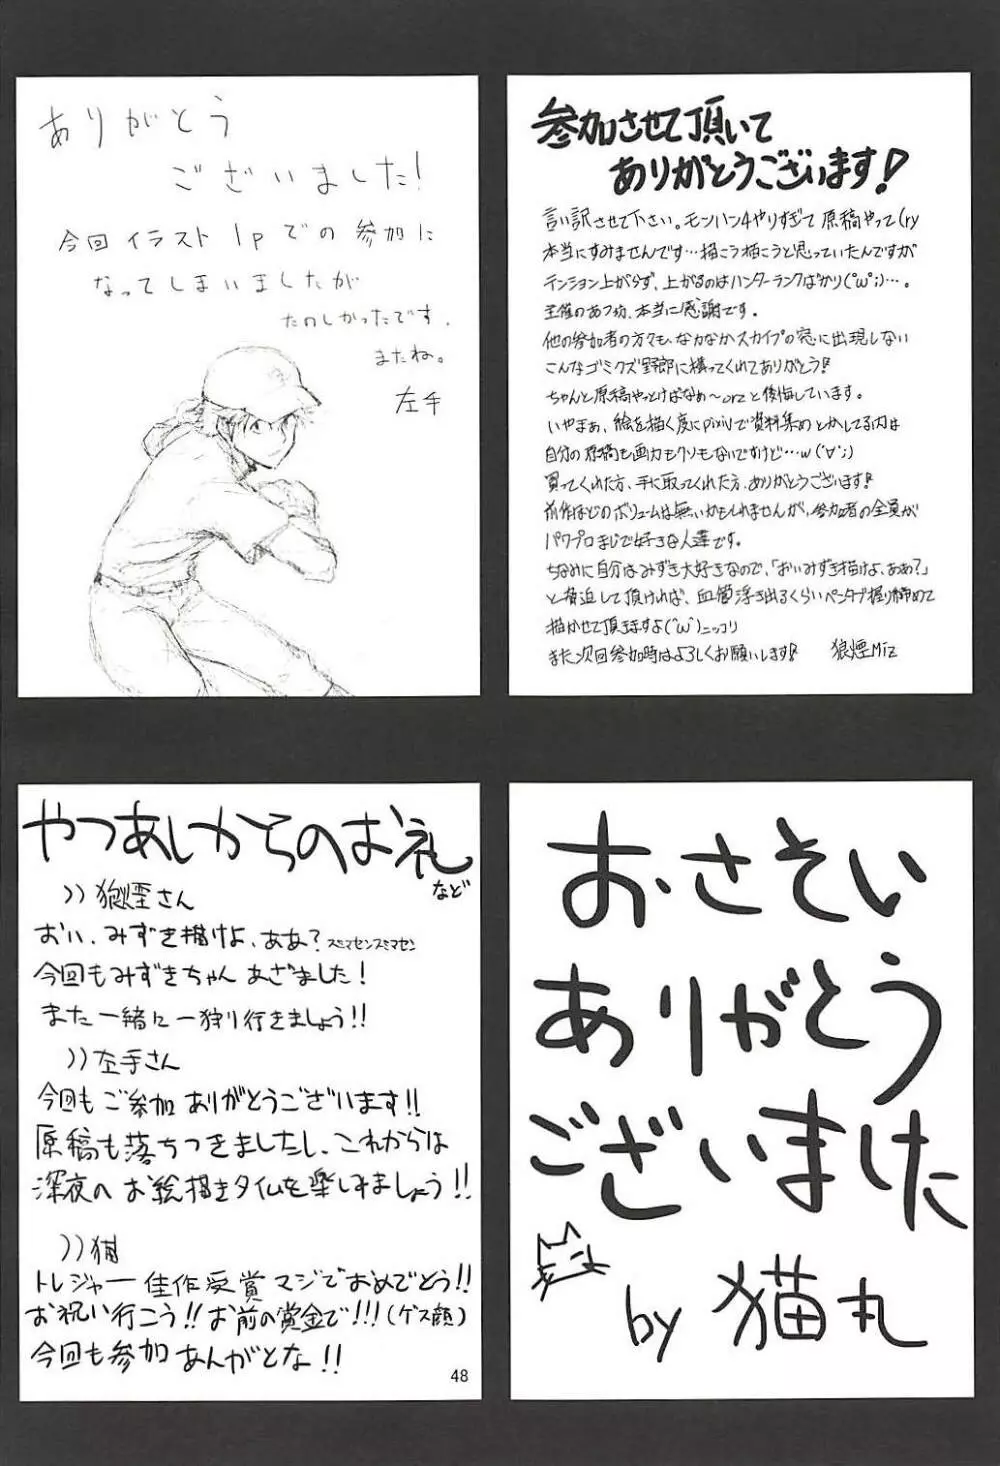 ありがとう
ございました!
今回イラスト1pでの参加に
なってしまいましたが
たのしかったです。
またね。
左手
参加させて頂いて
ありがとうございます!
言い訳させて下さい。モンハン4やりすぎて原稿やって(ry
本当にすみませんです…描こう描こうと思っていたんですが
テンション上がらず、上がるのはハンターランクばかり(°ω°;)…。
主催のあつ坊、本当に感謝です。
他の参加者の方々も、なかなかスカイプの窓に出現しない
こんなゴミクズ野郎に構ってくれてありがとう!
ちゃんと原稿やっとけばなぁ～orzと後悔しています。
いやまぁ、絵を描く度にpixivで資料集めとかしてる内は
自分の原稿も画力もクソもないですけど…w(´∀`;)
買ってくれた方、手に取ってくれた方、ありがとうございます!
前作ほどのボリュームは無いかもしれませんが、参加者の全員が
パワプロまじで好きな人達です。
ちなみに自分はみずき大好きなので、「おいみずき描けよ、ああ?」
と脅迫して頂ければ、血管浮き出るくらいペンタブ握り締めて
描かせて頂きますよ(´ω`)ニッコリ
また次回参加時はよろしくお願いします! 狼煙Miz
やつあしからのお礼
など
))狼煙さん
おい、みずき描けよ、ああ?スミマセンスミマセン
今回もみずきちゃんあざました!
また一緒に一狩り行きましょう!!
))左手さん
今回もご参加ありがとうございます!!
原稿も落ちつきましたし、これからは
深夜のお絵描きタイムを楽しみましょう!!
))猫
トレジャー佳作受賞マジでおめでとう!!
お祝い行こう!!お前の賞金で!!!(ゲス顔)
今回も参加あんがとな!!
48
おさそい
ありがとう
ございました
by 猫丸